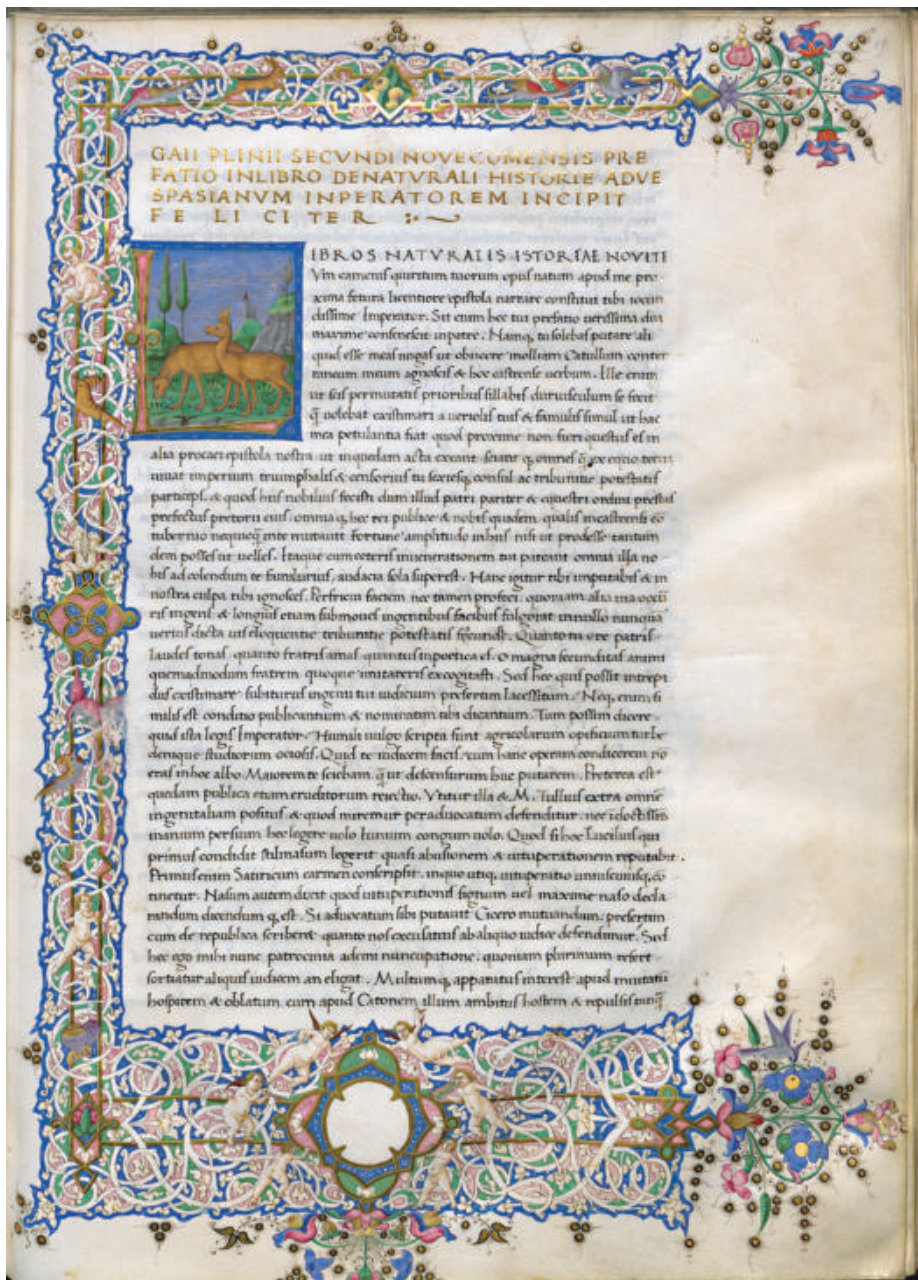 GAII PLINII SECVNDI NOVECOMENSIS PRE
FATIO INLIBRO DENATVRALI HISTORIE ADVE
SPASIANVM INPERATOREM INCIPIT
FE LI CI TER
LIBROS NATVRALIS ISTORIAE NOVITI
Vm camenis quiritum tuorum opus natum apud me pro
xima fetura licentiore epistola narrare constitui tibi iocun
dissime Imperator. Sit enim hec tui prefatio uerissima dum
maxime consenescit inpatre. Namq. tu solebas putare ali
quid esse meas nugas ut obiicere molliam Catullum conter
raneum meum agnoscis & hoc castrense uerbum. Ille enim
ut scis permutatis prioribus sillabis duriusculum se fecit
q̄ uolebat existimari a ueriolis tuis & famulis simul ut hac
mea petulantia fiat quod proxime non fieri questus es in
alia procaci epistola nostra ut inquedam acta exeant sciant q. omnes q̄ ex equo tecum
uiuat imperium triumphalis & censorius tu sexiesq. consul ac tribunitie potestatis
particeps. & quod hiis nobilius fecisti dum illud patri pariter & equestri ordini prestas
prefectus pretorii eius. omnia q. hec rei publice & nobis quidem qualis incastrensi cō
tubernio nequeq̄ inte mutauit Fortune amplitudo inhiis nisi ut prodesse tantum
dem posses ut uelles. Itaque cum ceteris inuenerationem tui pateant omnia illa no
bis ad colendum te familiarius, audacia sola superest. Hanc igitur tibi imputabis & in
nostra culpa tibi ignosces. Perfricui faciem nec tamen profeci. quoniam alia uia occu
ris ingens & longius etiam submoues ingenii facibus fulgorat innullo numquam
uerius dicta uis eloquentie tribunitie potestatis facundie. Quanto tu ore patris
laudes tonas. quanto fratris amas. quantus inpoetica es. O magna fecunditas animi
quemadmodum fratrem quoque imitareris excogitasti. Sed hec quis possit intrepi
dus existimare subiturus ingenii tui iudicium presertim lacessitum. Neq. enim si
milis est conditio publicantium & nominatim tibi dicantium. Tum possim dicere
quid ista legis Imperator. Humili uulgo scripta sunt agricolarum opificum turbe
denique studiorum ociosis. Quid te iudicem facis. cum hanc operam condicerem no
eras inhoc albo. Maiorem te sciebam. q̄ ut descensurum huc putarem. Preterea est
quedam publica etiam eruditorum reiectio. Vtitur illa & M. Tullius extra omnē
ingenii aliam positus & quod miremur peraduocatum defenditur. nec idoctissim
manium persium hec legere uolo Iunium congum uolo. Quod si hoc Lucilius qui
primus condidit stilinasum legerit quasi abusionem & uituperationem reputabit.
Primus enim Satiricum carmen conscripsit. inquo utiq. uituperatio uniuscuiusq. cō
tinetur. Nasum autem dixit quod uituperationis signum uel maxime naso decla
randum dicendum q. est. Si aduocatum sibi putauit Cicero mutuandum. presertim
cum de republica scriberet quanto nos excusatius ab aliquo iudice defendimur. Sed
hec ego mihi nunc patrocinia ademi nuncupatione. quoniam plurimum refert
sortiatur aliquis iudicem an eligat. Multumq. apparatus interest apud inuitatū
hospitem & oblatum. cum apud Catonem illum ambitus hostem & repulsis tanq̄